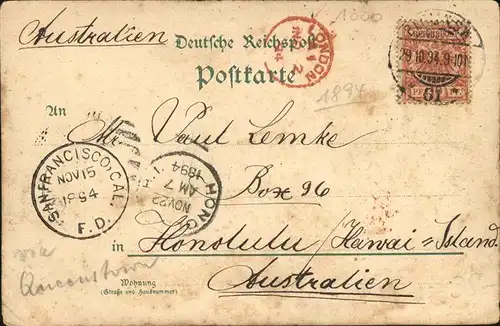 Australien
1894
Deutsche Reichspost
Postkarte
LONDON
NO 2
94
29.10.94.9-10
61
An
Mr Paul Lemke
Box 96
in Honolulu / Hawai = Island.
Australien
SAN FRANCISCO, CAL.
NOV 15
1894
F.D.
HONO
NOV 22
AM 7
1894
via
Queenstown
Wohnung
(Straße und Hausnummer)